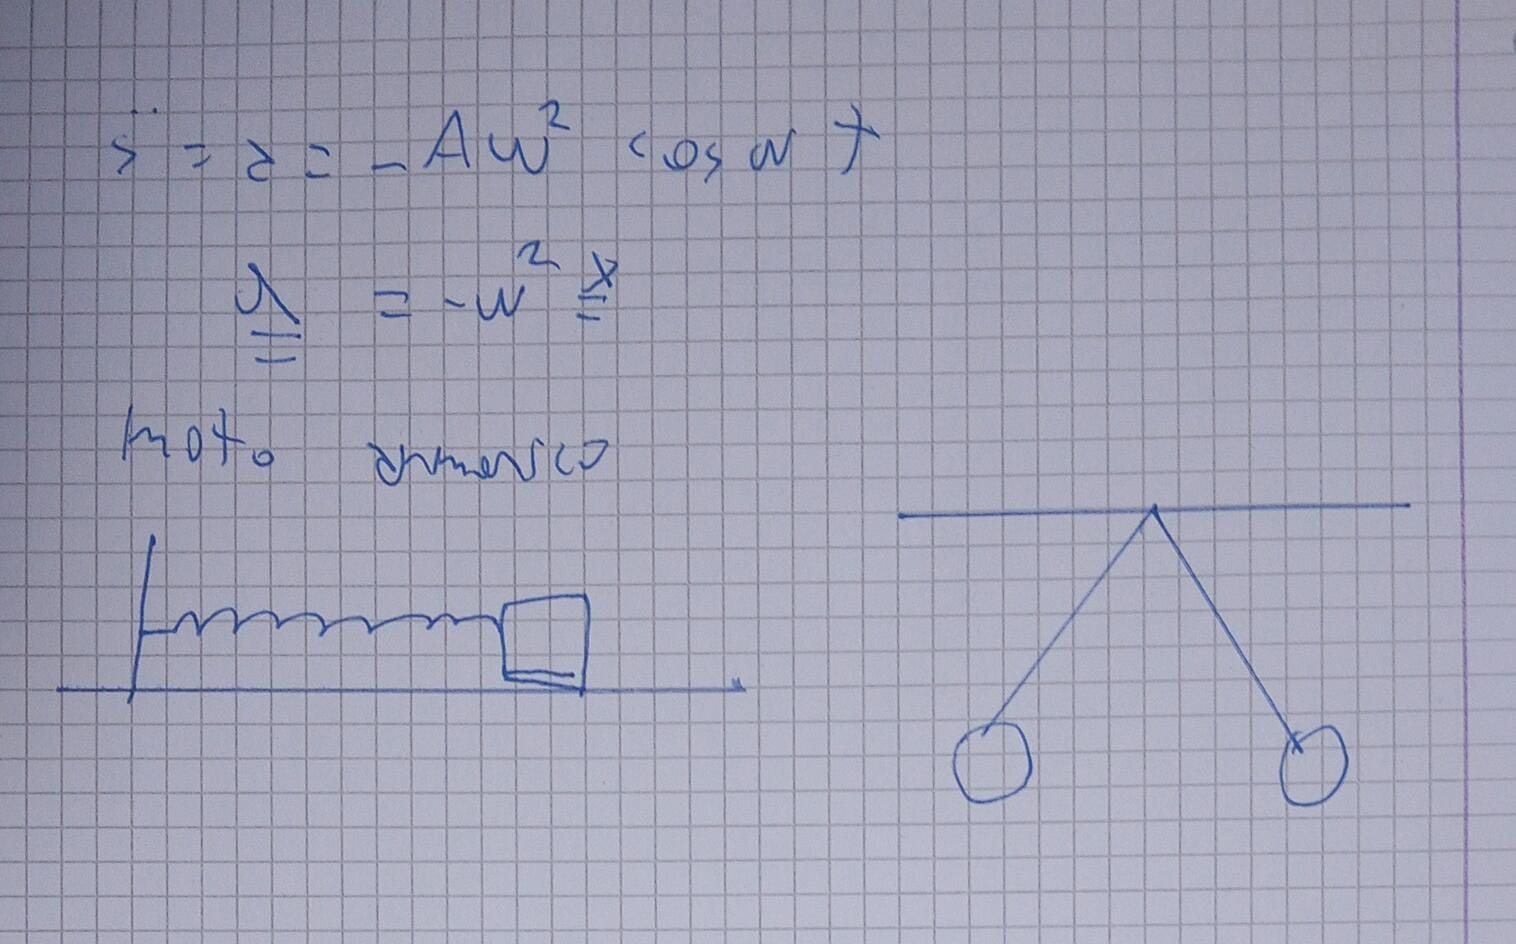 s̈ = a = - A w² cos w t
a = - w² x
moto armonico